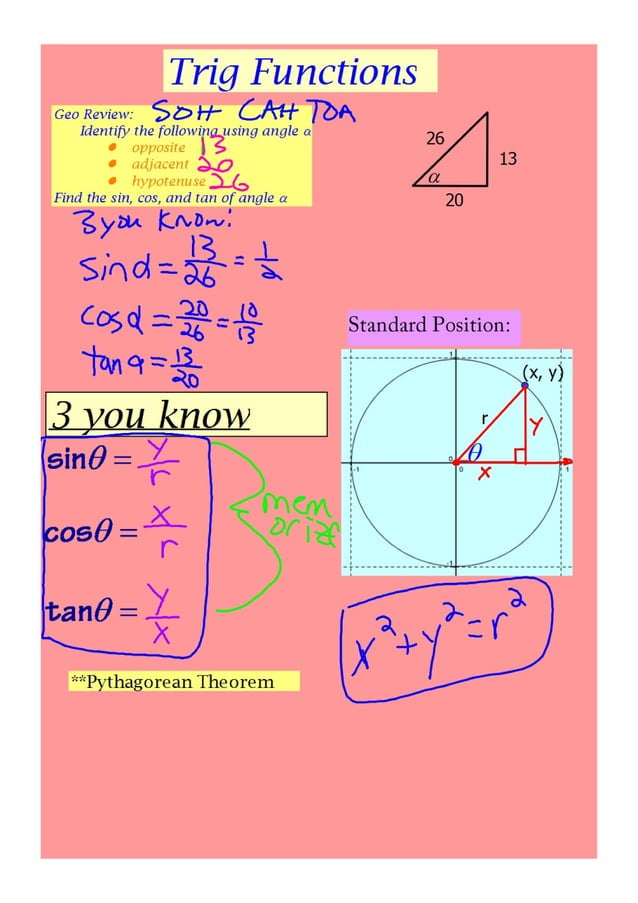 Trig Functions
Geo Review: SOH CAH TOA
Identify the following using angle α
• opposite 13
• adjacent 20
• hypotenuse 26
Find the sin, cos, and tan of angle α
26
13
α
20
3 you know:
sin α = 13/26 = 1/2
cos α = 20/26 = 10/13
tan α = 13/20
Standard Position:
1
(x, y)
r
y
θ
x
-1
0
0
1
-1
3 you know
sinθ = y/r
cosθ = x/r
tanθ = y/x
mem
orize
x² + y² = r²
**Pythagorean Theorem